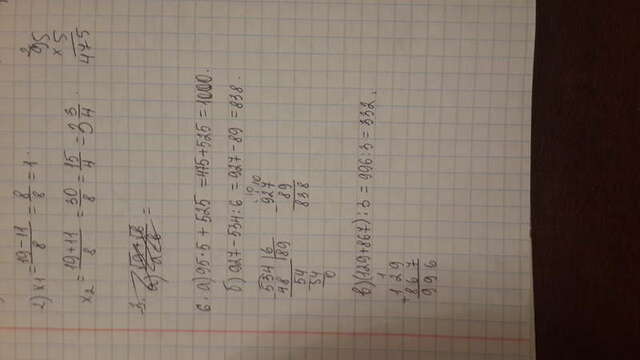 2) x₁ = (19-11)/8 = 8/8 = 1.
x₂ = (19+11)/8 = 30/8 = 15/4 = 3 3/4.
2
95
× 5
475
6. а) 95·5 + 525 = 475 + 525 = 1000.
б) 927 - 534:6 = 927 - 89 = 838.
534 | 6
48 | 89
54
54
0
10 10
927
- 89
838
в) (129+867):3 = 996:3 = 332.
1
129
+ 867
996